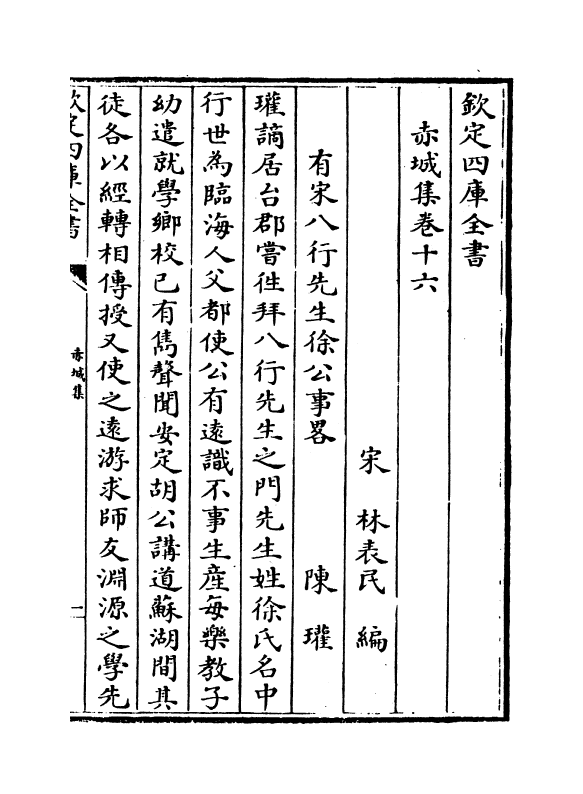 欽定四庫全書
赤城集卷十六
宋 林表民 編
有宋八行先生徐公事畧 陳瓘
瓘謫居台郡嘗徃拜八行先生之門先生姓徐氏名中
行世為臨海人父都使公有遠識不事生産每樂教子
幼遣就學鄉校已有雋聲聞安定胡公講道蘇湖間其
徒各以經轉相傳授又使之遠游求師友淵源之學先
欽定四庫全書
赤城集
二